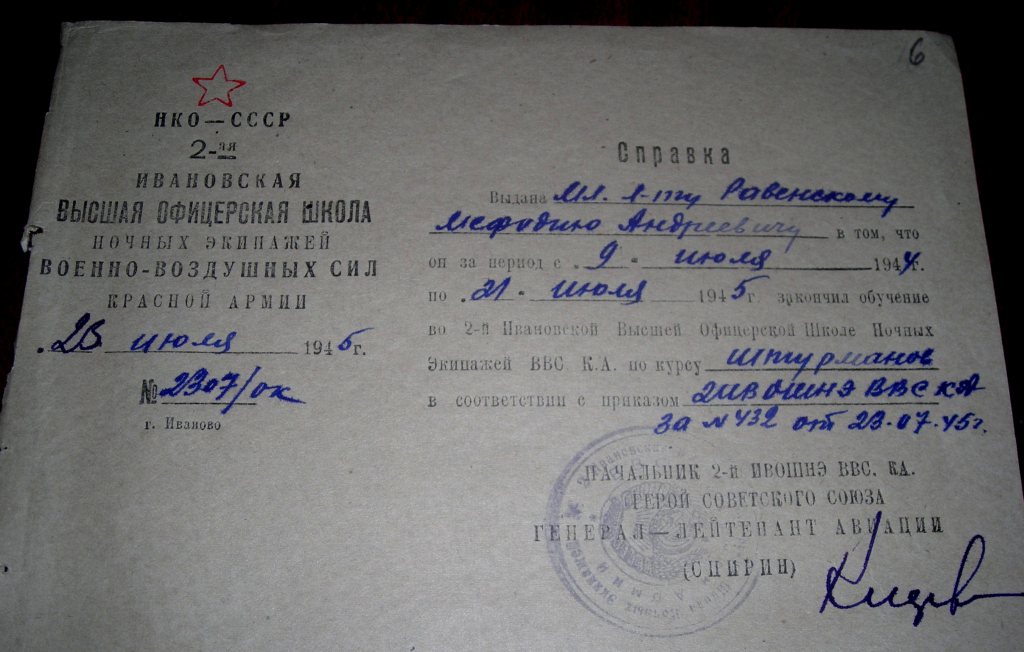 6
НКО—СССР
2-ая
ИВАНОВСКАЯ
ВЫСШАЯ ОФИЦЕРСКАЯ ШКОЛА
НОЧНЫХ ЭКИПАЖЕЙ
ВОЕННО-ВОЗДУШНЫХ СИЛ
КРАСНОЙ АРМИИ
23 июля 1945г.
№ 2307/ок
г. Иваново
Справка
Выдана Мл. л-ту Равенскому
Мефодию Андреевичу в том, что
он за период с 9 июля 1944г.
по 21 июля 1945г. закончил обучение
во 2-й Ивановской Высшей Офицерской Школе Ночных
Экипажей ВВС К.А. по курсу штурманов
в соответствии с приказом 2ИВОШНЭ ВВС КА
за № 432 от 23.07.45г.
НАЧАЛЬНИК 2-й ИВОШНЭ ВВС. КА.
ГЕРОЙ СОВЕТСКОГО СОЮЗА
ГЕНЕРАЛ—ЛЕЙТЕНАНТ АВИАЦИИ
(СПИРИН)